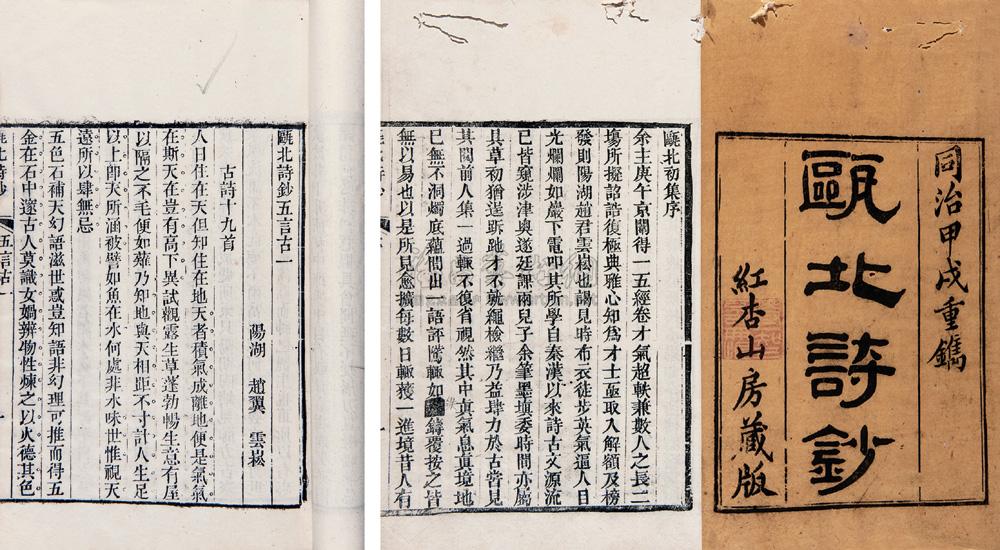 同治甲戌重鐫
甌北詩鈔
紅杏山房藏版
甌北初集序
余主庚午京闈得一五經卷才氣超軼兼數人之長二
塲所擬誥誥復極典雅心知爲才士亟取入解額及榜
發則陽湖趙君雲崧也謁見時布衣徒步英氣逼人目
光爛爛如巖下電叩其所學自秦漢以來詩古文源流
已皆窺涉津奥遂延課兩兒子余筆墨塡委時間亦屬
具草初猶逞跅跎才不就繩檢繼乃益肆力於古嘗見
其閱前人集一過輒不復省視然其中眞氣息眞境地
已無不洞燭底蘊間出一語評隲輒如鑄覆按之皆
無以易也以是所見愈擴每數日輒獲一進境昔人有
甌北詩鈔五言古一
陽湖 趙翼 雲崧
古詩十九首
人日住在天但知住在地天者積氣成離地便是氣氣
在斯天在豈有高下異試觀露生草蓬勃暢生意有屋
以隔之不毛便如薙乃知地與天相距不寸計人生足
以上卽天所涵被譬如魚在水何處非水味世惟視天
遠所以肆無忌
五色石補天幻語滋世惑豈知語非幻理可推而得五
金在石中邃古人莫識女媧辨物性煉之以火德其色
甌北詩鈔 五言古一